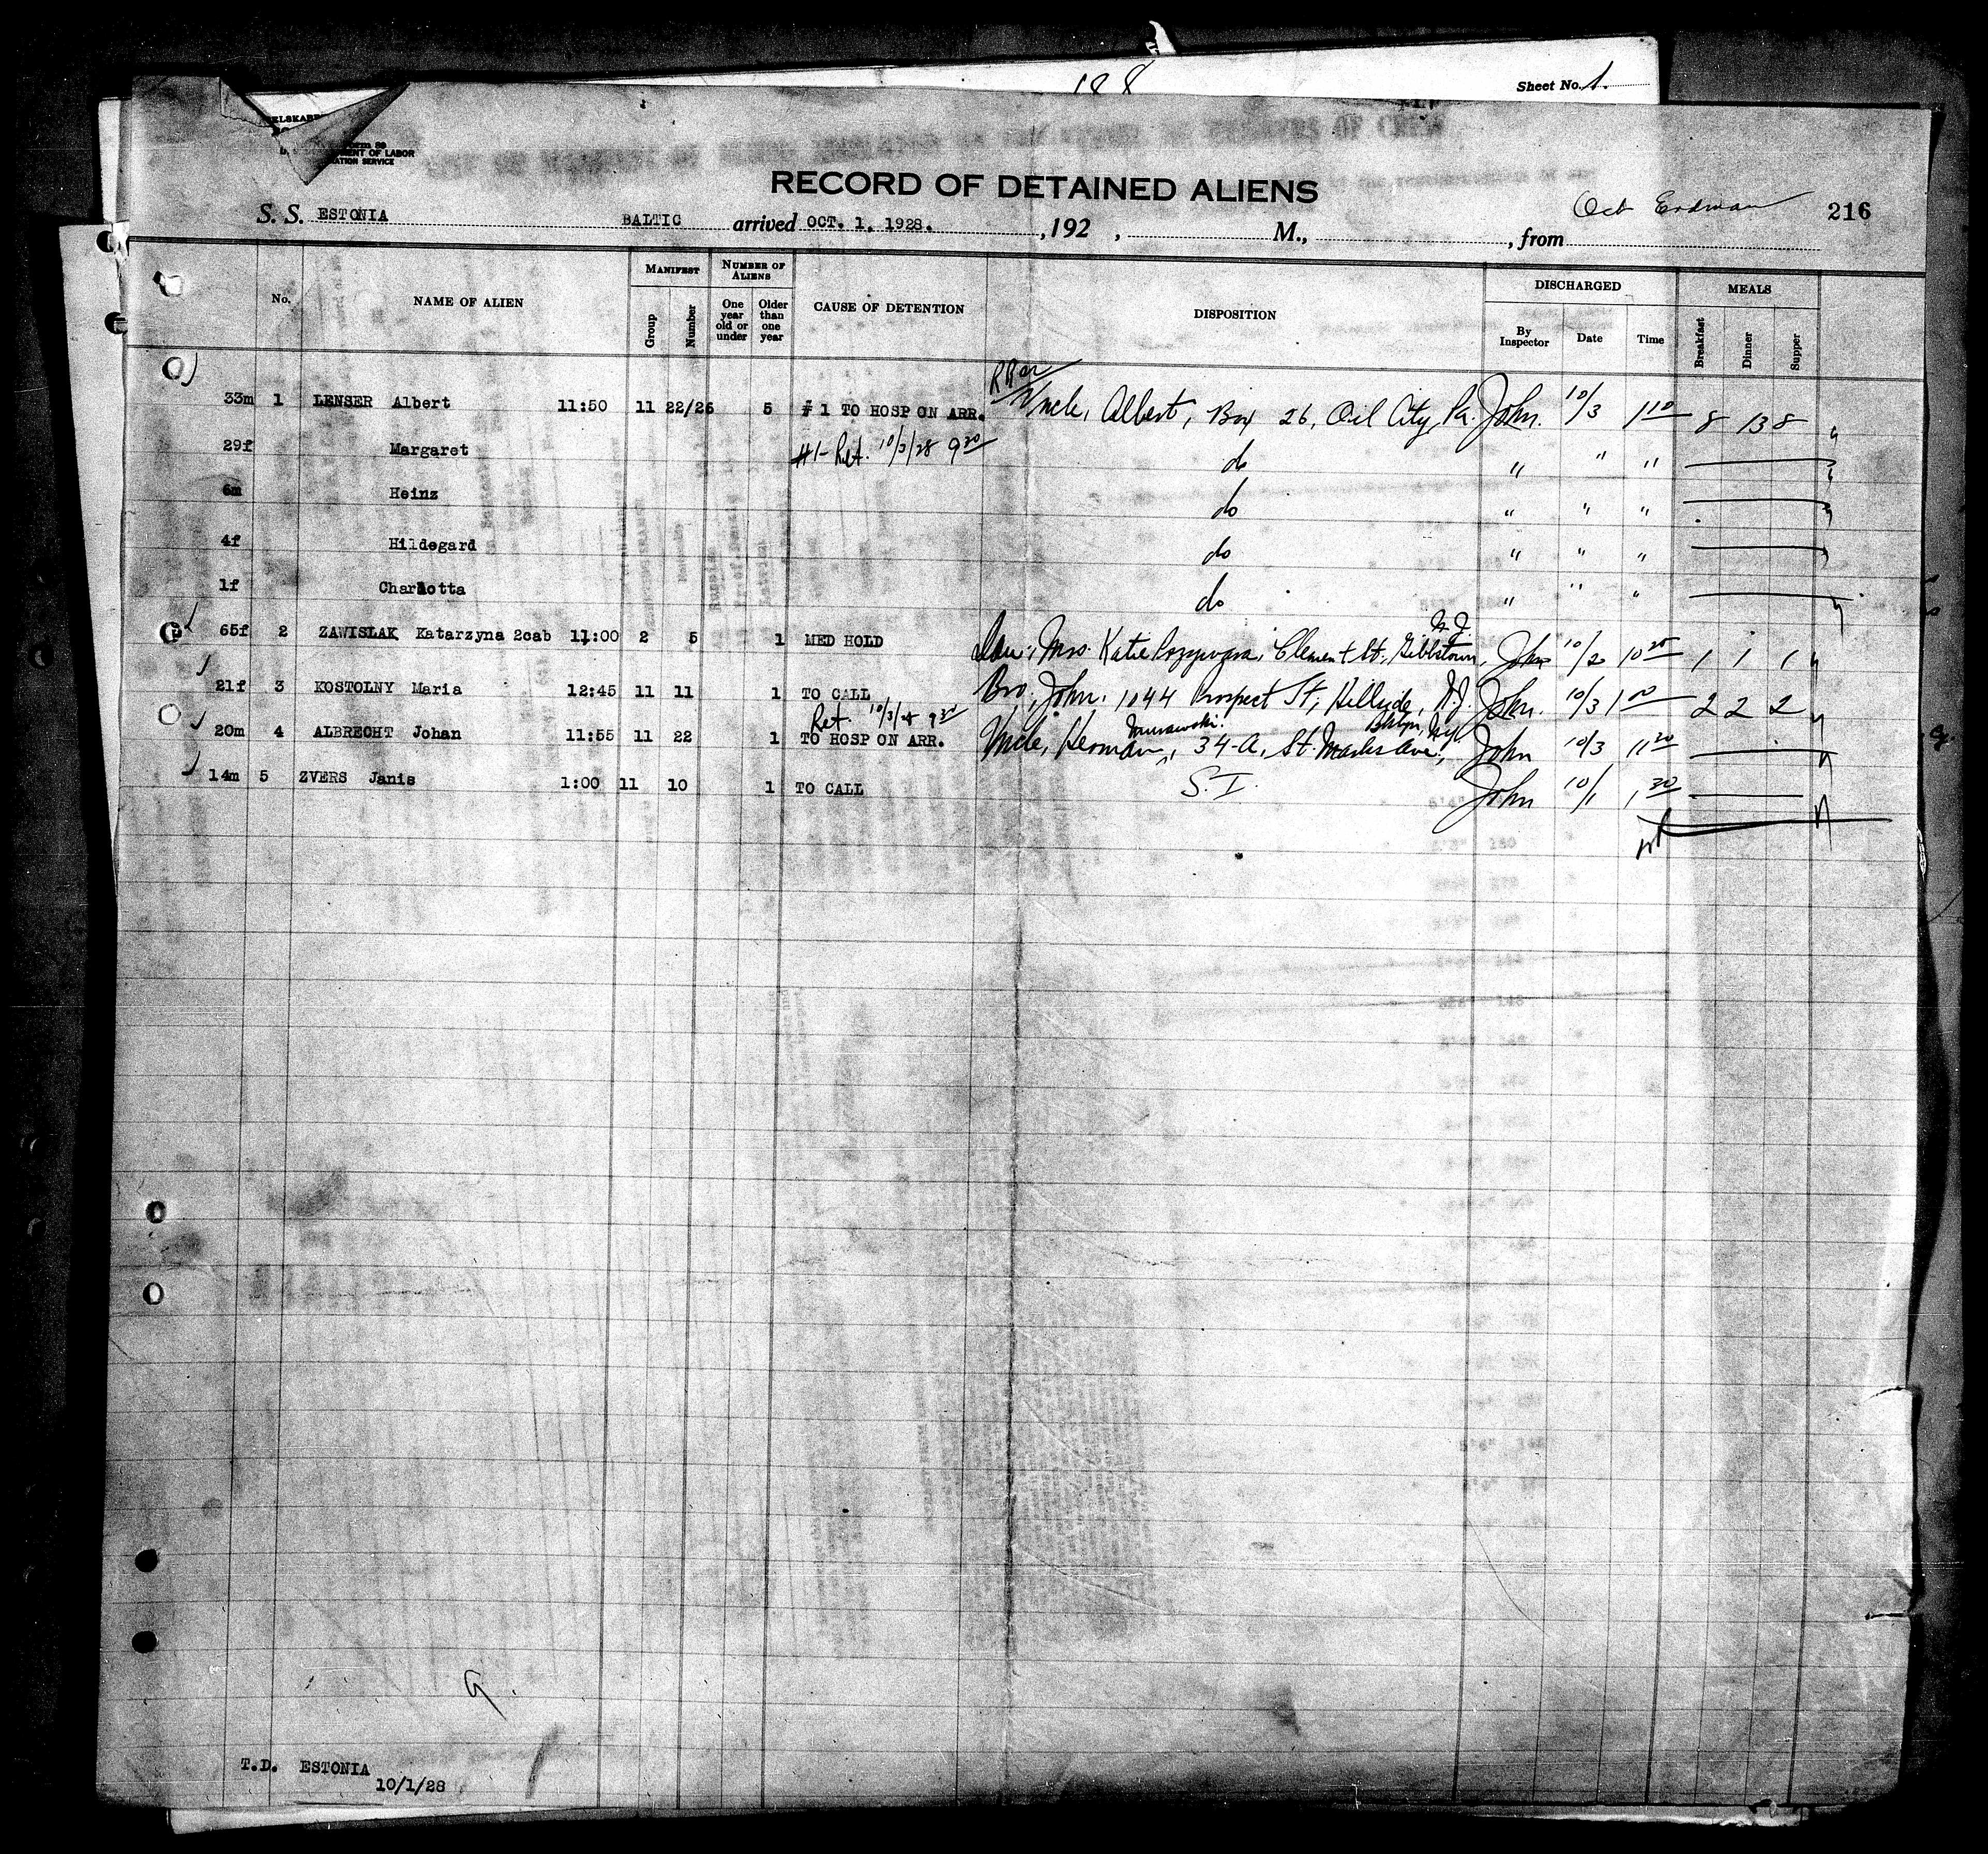 188
Sheet No. 1.
RECORD OF DETAINED ALIENS
S. S. ESTONIA BALTIC arrived OCT. 1, 1928. ,192 , M., , from 216
No. NAME OF ALIEN MANIFEST Group Number NUMBER OF ALIENS One year old or under Older than one year CAUSE OF DETENTION DISPOSITION DISCHARGED By Inspector Date Time MEALS Breakfast Dinner Supper
33m 1 LENSER Albert 11:50 11 22/26 5 #1 TO HOSP ON ARR. Uncle, Albert, Box 26, Oil City, Pa. John. 10/3 1 10 8 13 8
29f Margaret #1- Ret. 10/3/28 9 20 do " " "
6m Heinz do " " "
4f Hildegard do " " "
1f Charlotta do " " "
65f 2 ZAWISLAK Katarzyna 2cab 11:00 2 5 1 MED HOLD Dau: Mrs. Katie Clement St., Gibbstown, N.J. John 10/2 10 20 1 1 1
21f 3 KOSTOLNY Maria 12:45 11 11 1 TO CALL Bro, John, 1044 Prospect St, Hillside, N.J. John. 10/3 1 00 2 2 2
20m 4 ALBRECHT Johan 11:55 11 22 1 Ret. 10/3/28 9 20 TO HOSP ON ARR. Uncle, Herman Murawski, 34-A, St. Marks Ave, Bklyn, N.Y. John 10/3 11 20
14m 5 ZVERS Janis 1:00 11 10 1 TO CALL S.I. John 10/1 1 30
T.D. ESTONIA
10/1/28